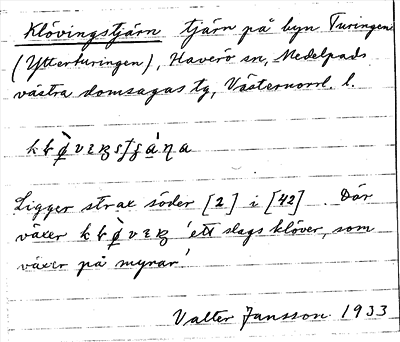 Klövingstjärn tjärn på byn Turingen
(Ytterturingen), Haverö sn, Medelpads
västra domsagas tg, Västernorrl. l.
Ligger strax söder [2] i [42]. Där
växer 'ett slags klöver, som
växer på myrar'.
Valter Jansson 1933